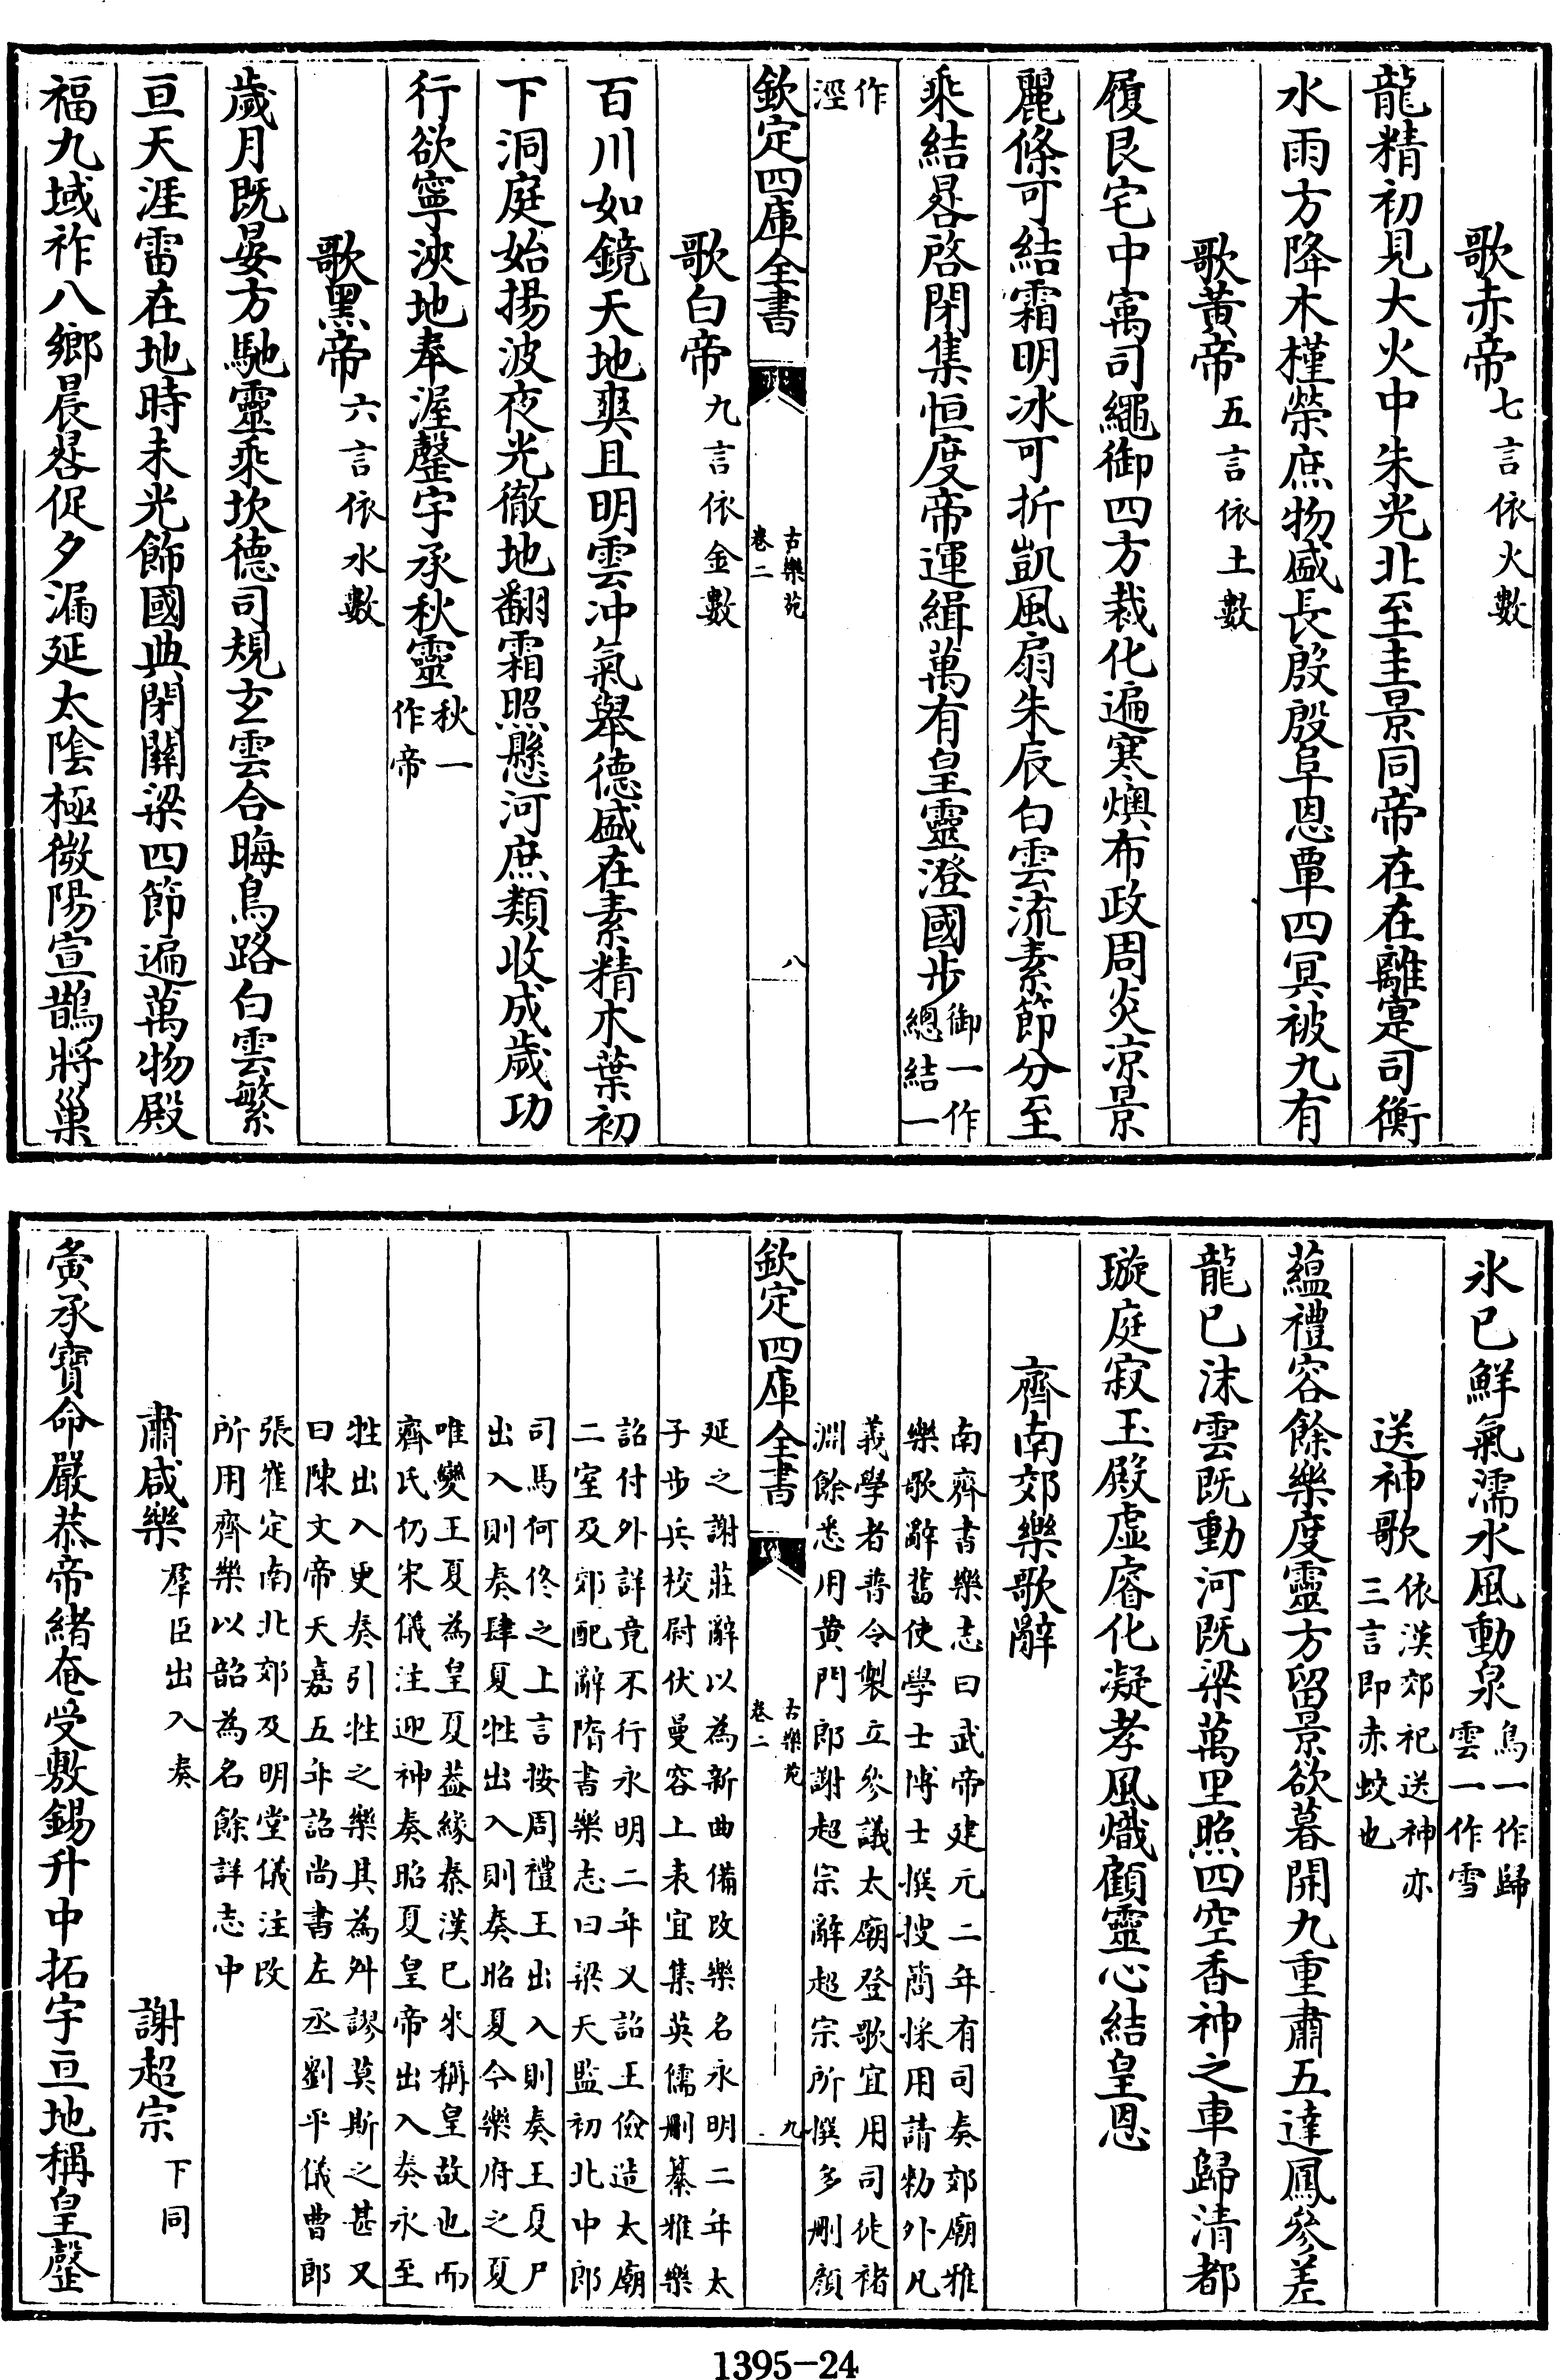 歌赤帝七言依火數
龍精初見大火中朱光北至圭景同帝在在離寔司衡
水雨方降木槿榮庶物盛長殷殷阜恩覃四冥被九有
歌黃帝五言依土數
履艮宅中㝢司繩御四方裁化遍寒燠布政周炎涼景
麗條可結霜明冰可折凱風扇朱辰白雲流素節分至
乘結晷啓閉集恒度帝運緝萬有皇靈澄國步御一作總結一
作湮
欽定四庫全書 古樂苑卷二 八
歌白帝九言依金數
百川如鏡天地爽且明雲冲氣舉德盛在素精木葉初
下洞庭始揚波夜光徹地翻霜照懸河庶類收成歲功
行欲寧浹地奉渥罄宇承秋靈秋一作帝
歌黑帝六言依水數
歲月既晏方馳靈乘坎德司規玄雲合晦鳥路白雲繁
亘天涯雷在地時未光飾國典閉關梁四節遍萬物殿
福九域祚八鄉晨晷促夕漏延太陰極微陽宣鵲將巢
氷已鮮氣濡水風動泉鳥一作歸雲一作雪
送神歌依漢郊祀送神亦三言即赤蛟也
蘊禮容餘樂度靈方留景欲暮開九重肅五達鳳參差
龍已沬雲既動河既梁萬里照四空香神之車歸清都
璇庭寂玉殿虛睿化凝孝風熾顧靈心結皇恩
齊南郊樂歌辭
南齊書樂志曰武帝建元二年有司奏郊廟雅
樂歌辭舊使學士博士撰搜簡採用請勑外凡
義學者普令製立參議太廟登歌宜用司徒褚
淵餘悉用黃門郎謝超宗辭超宗所撰多刪顏
欽定四庫全書 古樂苑卷二 九
延之謝莊辭以為新曲備改樂名永明二年太
子步兵校尉伏曼容上表宜集英儒刪纂雅樂
詔付外詳竟不行永明二年又詔王儉造太廟
二室及郊配辭隋書樂志曰梁天監初北中郎
司馬何佟之上言按周禮王出入則奏王夏尸
出入則奏肆夏牲出入則奏昭夏今樂府之夏
唯變王夏為皇夏葢緣秦漢已來稱皇故也而
齊氏仍宋儀注迎神奏昭夏皇帝出入奏永至
牲出入更奏引牲之樂其為舛謬莫斯之甚又
曰陳文帝天嘉五年詔尚書左丞劉平儀曹郎
張崔定南北郊及明堂儀注改
所用齊樂以韶為名餘詳志中
肅咸樂羣臣出入奏 謝超宗下同
夤承寶命嚴恭帝緒奄受敷錫升中拓宇亘地稱皇罄
1395-24